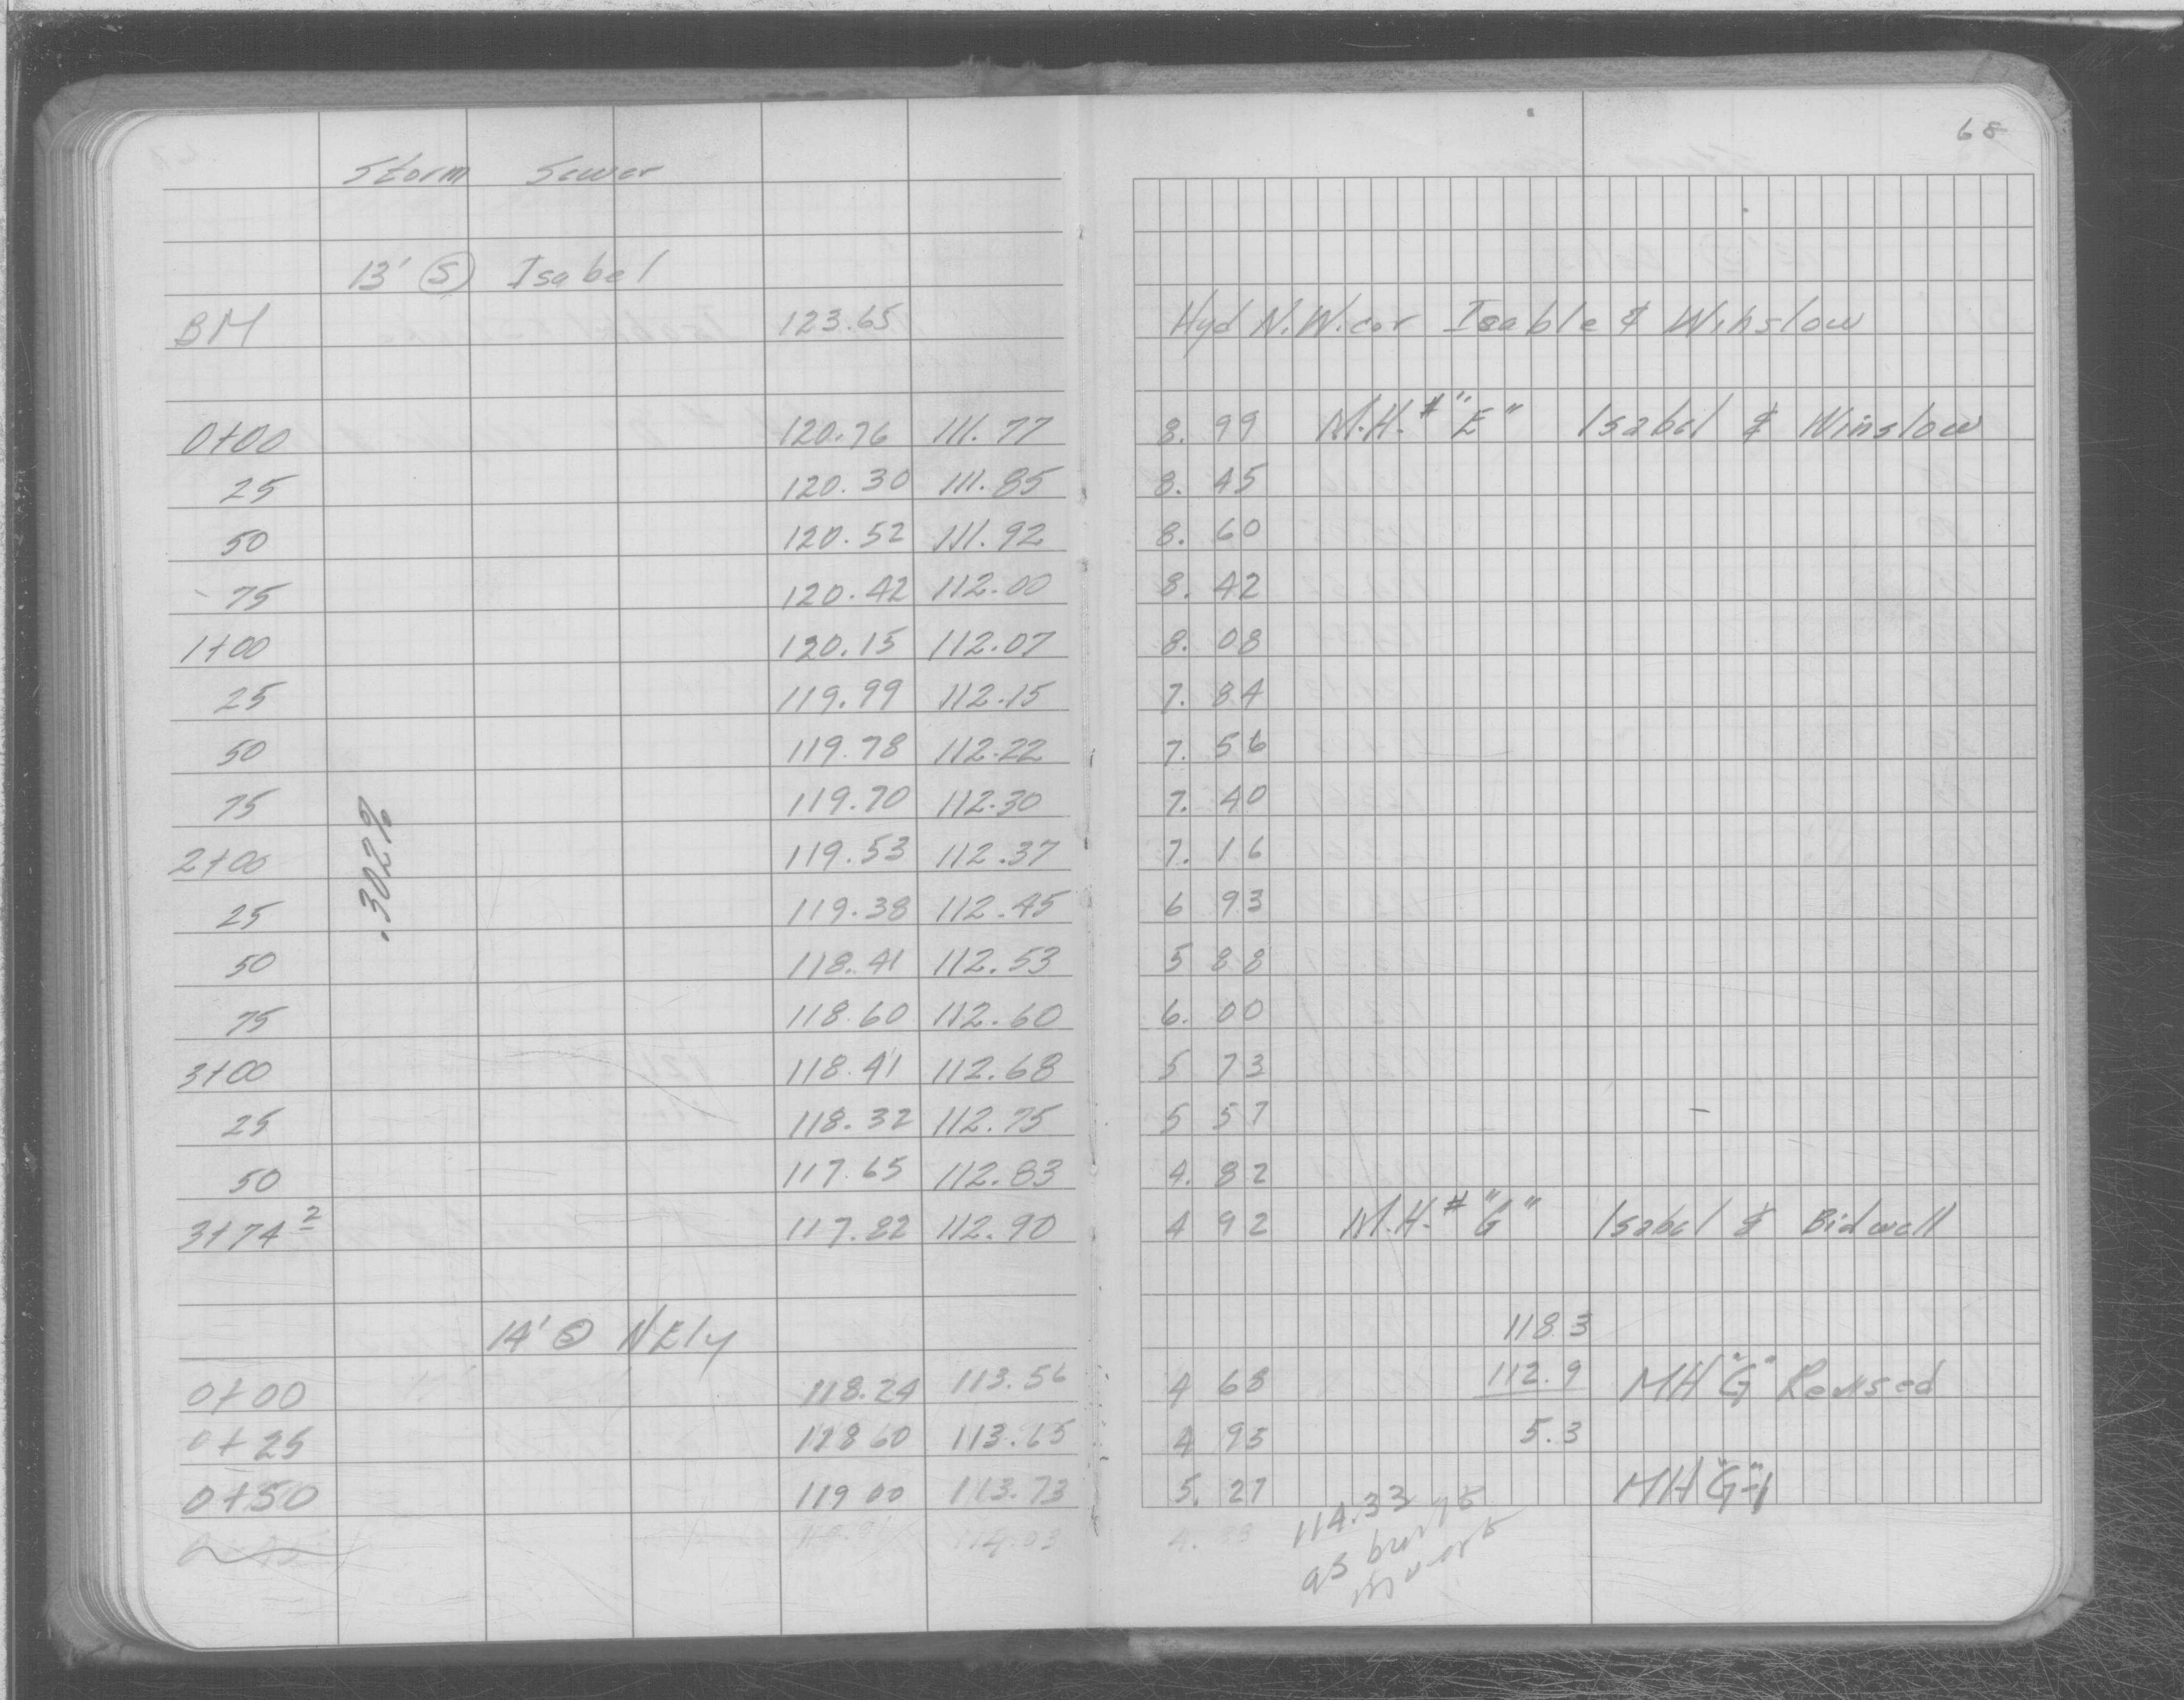 68
Storm Sewer
13' (S) Isabel
BM 123.65 Hyd N.W. cor Isable & Winslow
0+00 120.76 111.77 8.99 M.H. # "E" Isabel & Winslow
25 120.30 111.85 8.45
50 120.52 111.92 8.60
75 120.42 112.00 8.42
1+00 120.15 112.07 8.08
25 119.99 112.15 7.84
50 119.78 112.22 7.56
75 119.70 112.30 7.40
2+00 119.53 112.37 7.16
.302%
25 119.38 112.45 6 93
50 118.41 112.53 5 88
75 118.60 112.60 6.00
3+00 118.41 112.68 5 73
25 118.32 112.75 5 57
50 117.65 112.83 4.82
3+74 2 117.82 112.90 4 92 M.H. # "G" Isabel & Bidwell
118.3
14' (S) NEly
0+00 118.24 113.56 4 68 112.9 MH "G" Revised
0+25 118 60 113.65 4 95 5.3
0+50 119 00 113.73 5.27 MH "G-1"
114.03
114.33
as built
invert